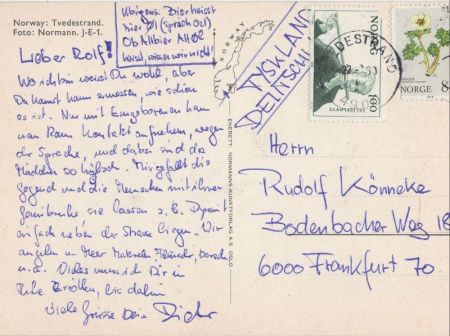 Norway: Tvedestrand.
Foto: Normann. J-E-1.
Übrigens: Bier heisst
hier Øl (sprich Oel)
Ob Altbier Alt Øl
heisst, wissen wir nicht!
Lieber Rolf!
Wo ich bin weisst Du wohl, aber
Du kannst kaum ermessen wie schön
es ist. Nur mit Eingeborenen kann
man kaum Kontakt aufnehmen, wegen
der Sprache, und dabei sind die
Mädchen so hübsch. Mir gefällt die
Gegend und die Menschen mit ihrer
sie lassen z.B. Dynamit
einfach neben der Strasse liegen. Wir
angeln im Meer Makrelen, Flunder, Dorsch
u.a. Vieles muss ich Dir in
Ruhe erzählen, bis dahin
viele Grüsse Dein
NORWAY
ENERETT: NORMANNS KUNSTFORLAG A/S OSLO
TYSKLAND
DEUTSCHL
NORGE
100
DESTRAND
490
NORGE
Herrn
Rudolf Könneke
Bodenbacher Weg 18
6000 Frankfurt 70